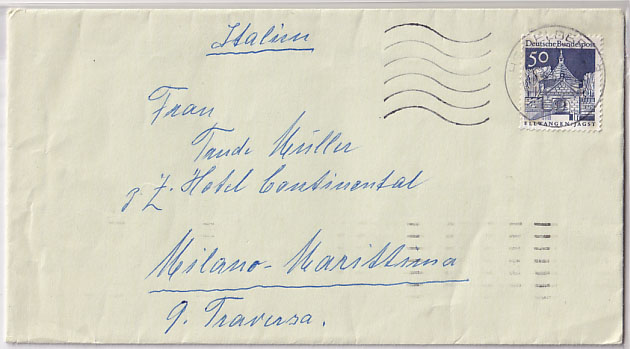 Italien
Deutsche Bundespost
50
ELLWANGEN/JAGST
Frau
Trude Müller
z. Z. Hotel Continental
Milano-Marittima
9. Traversa.